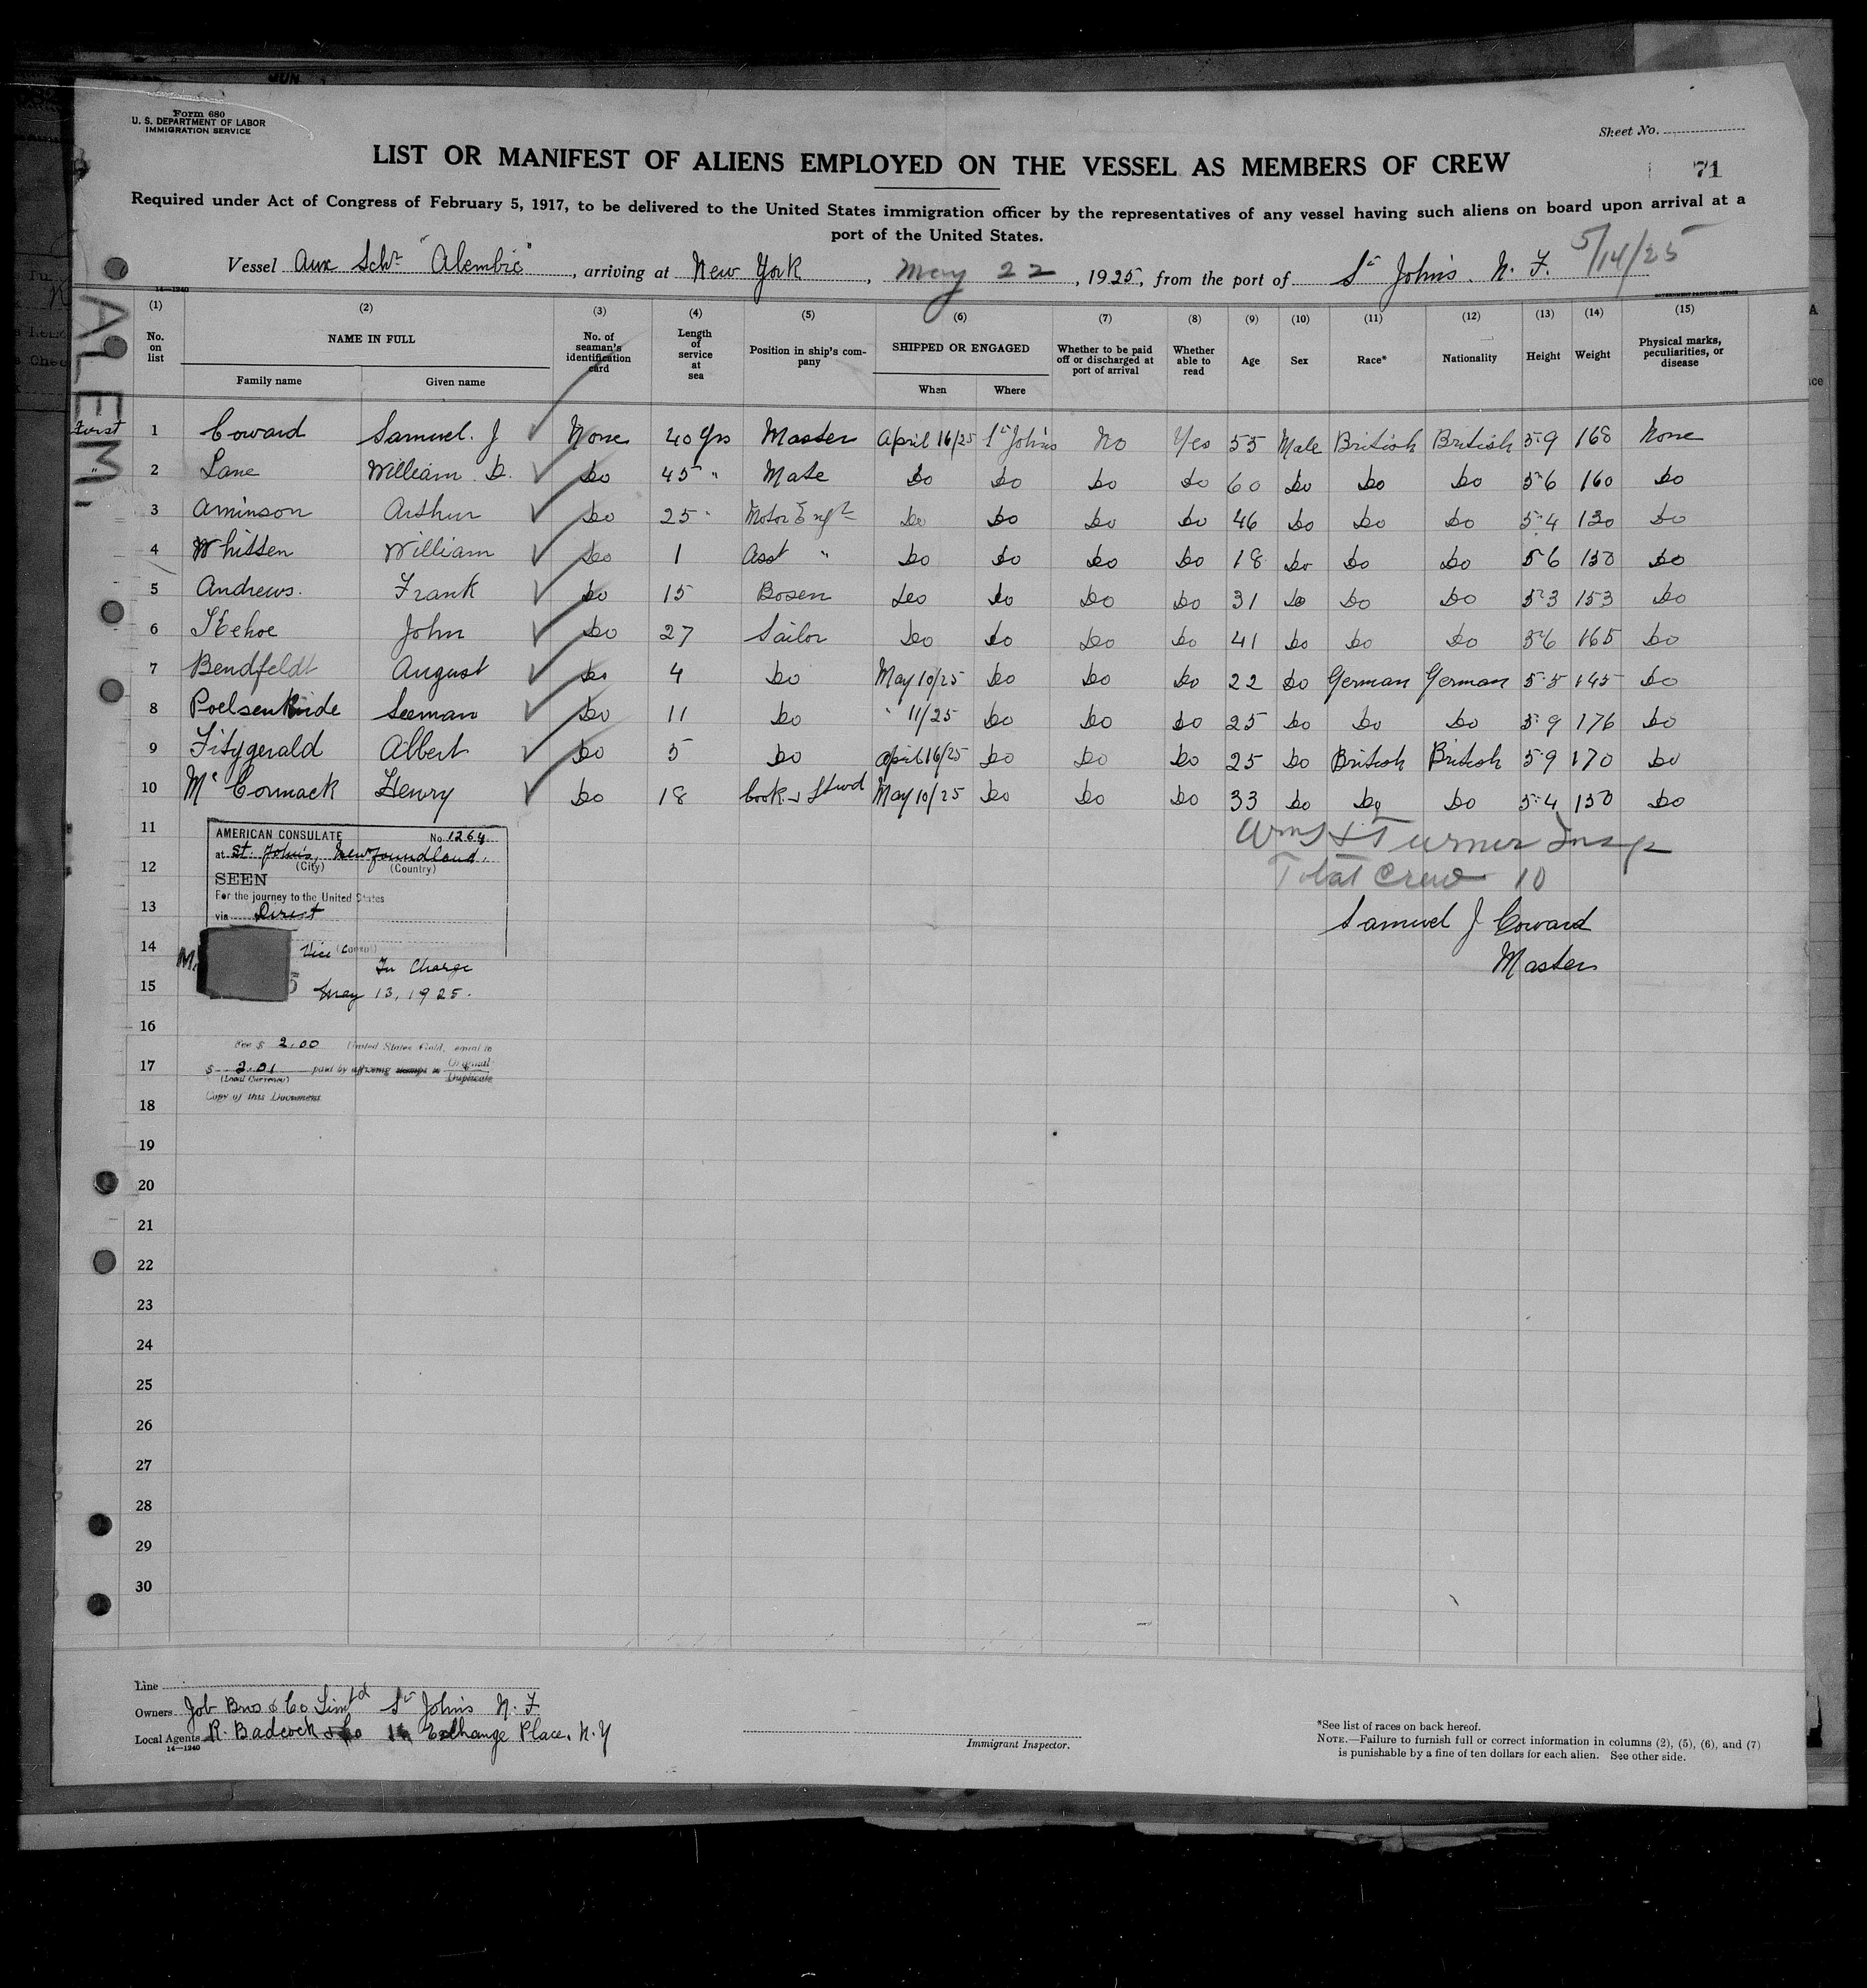 JUN
Form 680
U. S. DEPARTMENT OF LABOR
IMMIGRATION SERVICE
Sheet No.
LIST OR MANIFEST OF ALIENS EMPLOYED ON THE VESSEL AS MEMBERS OF CREW
71
Required under Act of Congress of February 5, 1917, to be delivered to the United States immigration officer by the representatives of any vessel having such aliens on board upon arrival at a
port of the United States.
5/14/25
Vessel Aux Schr "Alembic", arriving at New York, May 22, 1925, from the port of St Johns. N. F.
14-1240
GOVERNMENT PRINTING OFFICE
ALEM.
(1) (2) (3) (4) (5) (6) (7) (8) (9) (10) (11) (12) (13) (14) (15)
No. on list NAME IN FULL No. of seaman's identification card Length of service at sea Position in ship's company SHIPPED OR ENGAGED Whether to be paid off or discharged at port of arrival Whether able to read Age Sex Race* Nationality Height Weight Physical marks, peculiarities, or disease
Family name Given name When Where
First 1 Coward Samuel. J None 40 Yrs Master April 16/25 St Johns No Yes 55 Male British British 5-9 168 None
" 2 Lane William D. do 45 " Mate do do do do 60 do do do 5-6 160 do
3 Aminson Arthur do 25 " Motor Engr do do do do 46 do do do 5-4 130 do
4 Whitten William do 1 Asst " do do do do 18 do do do 5 6 150 do
5 Andrews. Frank do 15 Bosen do do do do 31 do do do 5-3 153 do
6 Kehoe John do 27 Sailor do do do do 41 do do do 5-6 165 do
7 Bendfeldt August do 4 do May 10/25 do do do 22 do German German 5-5 145 do
8 Poelsenkinde Seeman do 11 do " 11/25 do do do 25 do do do 5-9 176 do
9 Fitzgerald Albert do 5 do April 16/25 do do do 25 do British British 5-9 170 do
10 Mc Cormack Henry do 18 Cook & Stwd May 10/25 do do do 33 do do do 5-4 150 do
11
AMERICAN CONSULATE No. 1264
at St. John's, Newfoundland.
(City) (Country)
Turner Insp
12
SEEN
Total Crew 10
For the journey to the United States
13
via Direct
Samuel J Coward
14
Vice (Consul)
In Charge
Master
15
May 13, 1925.
16
Fee $ 2.00 United States Gold, equal to
17
$ 2.01 paid by affixing stamps to Original
(Local Currency) Duplicate
Copy of this Document
18
19
20
21
22
23
24
25
26
27
28
29
30
Line
Owners Job Bros & Co Limtd St Johns N. F.
Local Agents R. Badcock & Co 16 Exchange Place. N.Y
14-1240
Immigrant Inspector.
*See list of races on back hereof.
NOTE.—Failure to furnish full or correct information in columns (2), (5), (6), and (7)
is punishable by a fine of ten dollars for each alien. See other side.